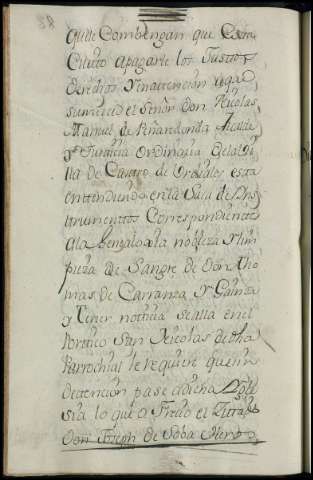 que le Combengan que Esta
Ciuto apagarle los Justos
Derechos Yenatencion aque
sumerced el Señor Don Nicolas
Manuel de Peñarredonda Alcalde
Justicia Ordinaria dela Vi
lla de Castro de Urdiales esta
entendiendo en la Saca de Yns
trumentos Correspondientes
ala Yengaloxia nobleza Ylim
pieza de Sangre de Don Tho
mas de Carranza Y
y Tener noticia sealla en el
Portico San Nicolas de dha
Parrochial le requiere quesin
detencion pase adicha Ygle
sia lo que o Frecio el
Don Joseph de Soba